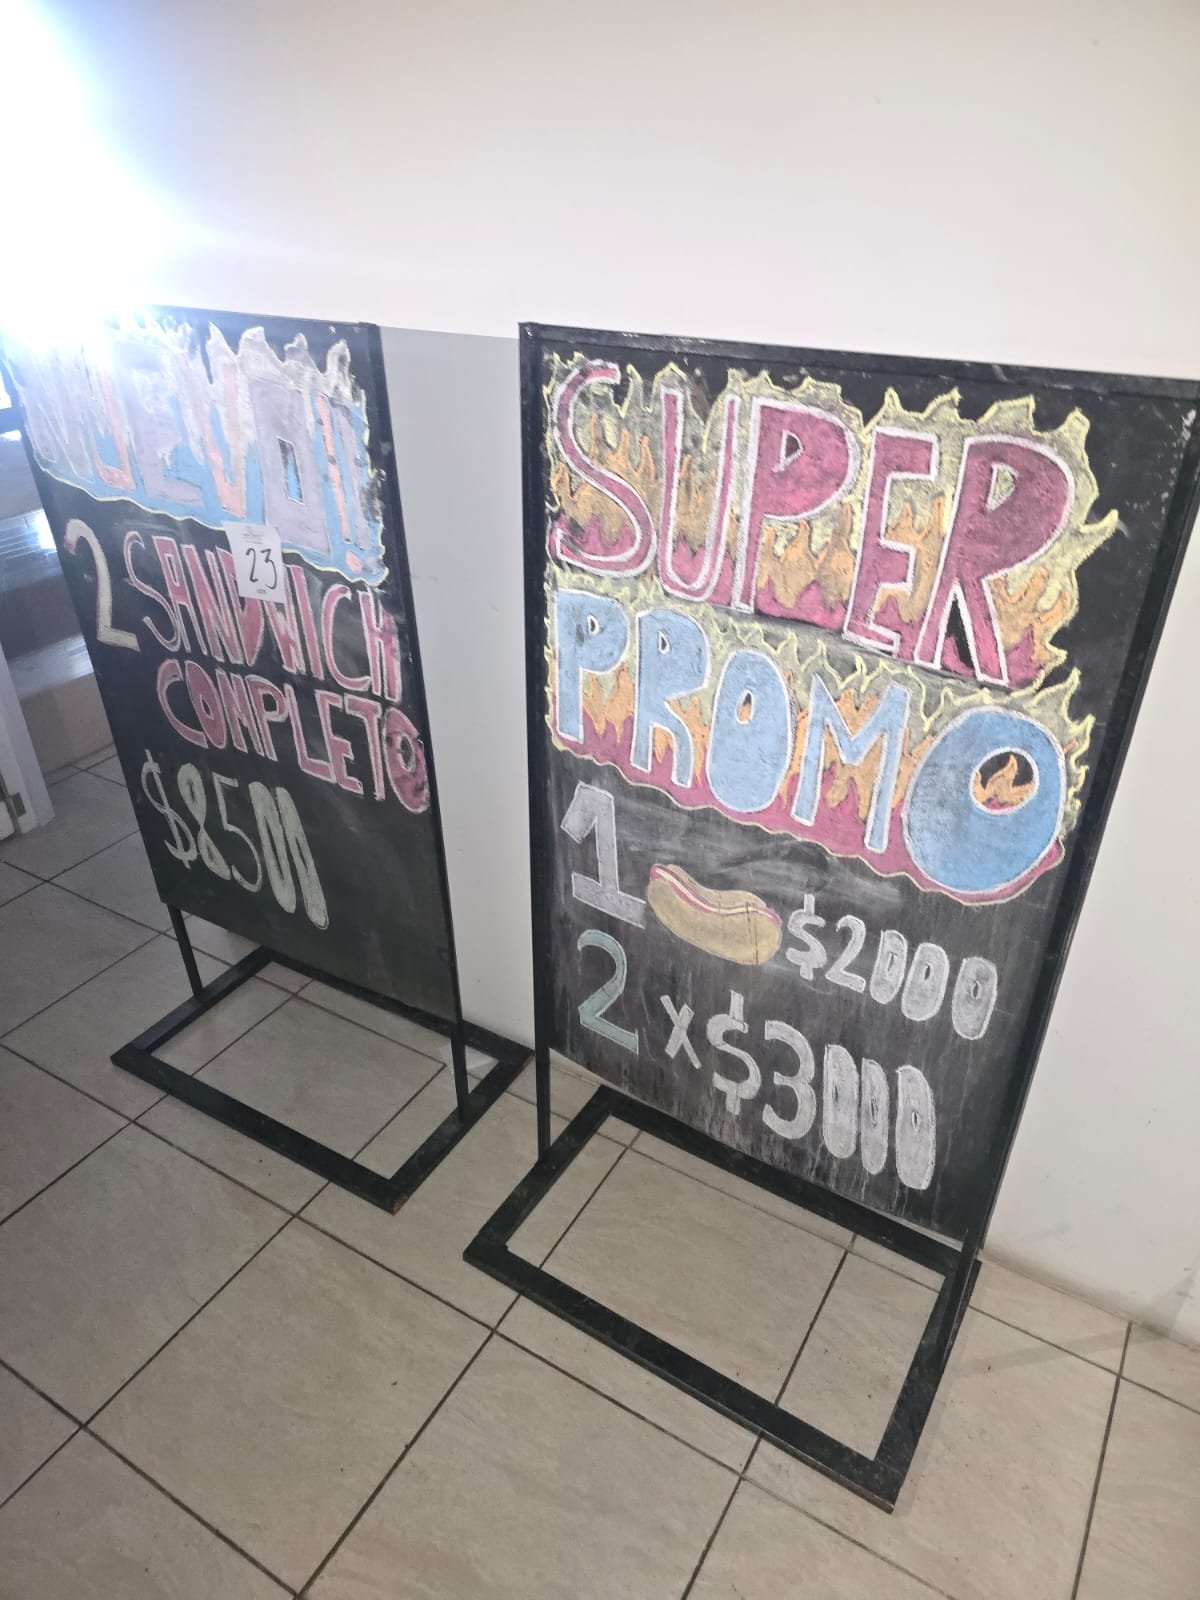 NUEVO!!
2 SANDWICH
COMPLETO
$8500
23
SUPER
PROMO
1 $2000
2 x $3000